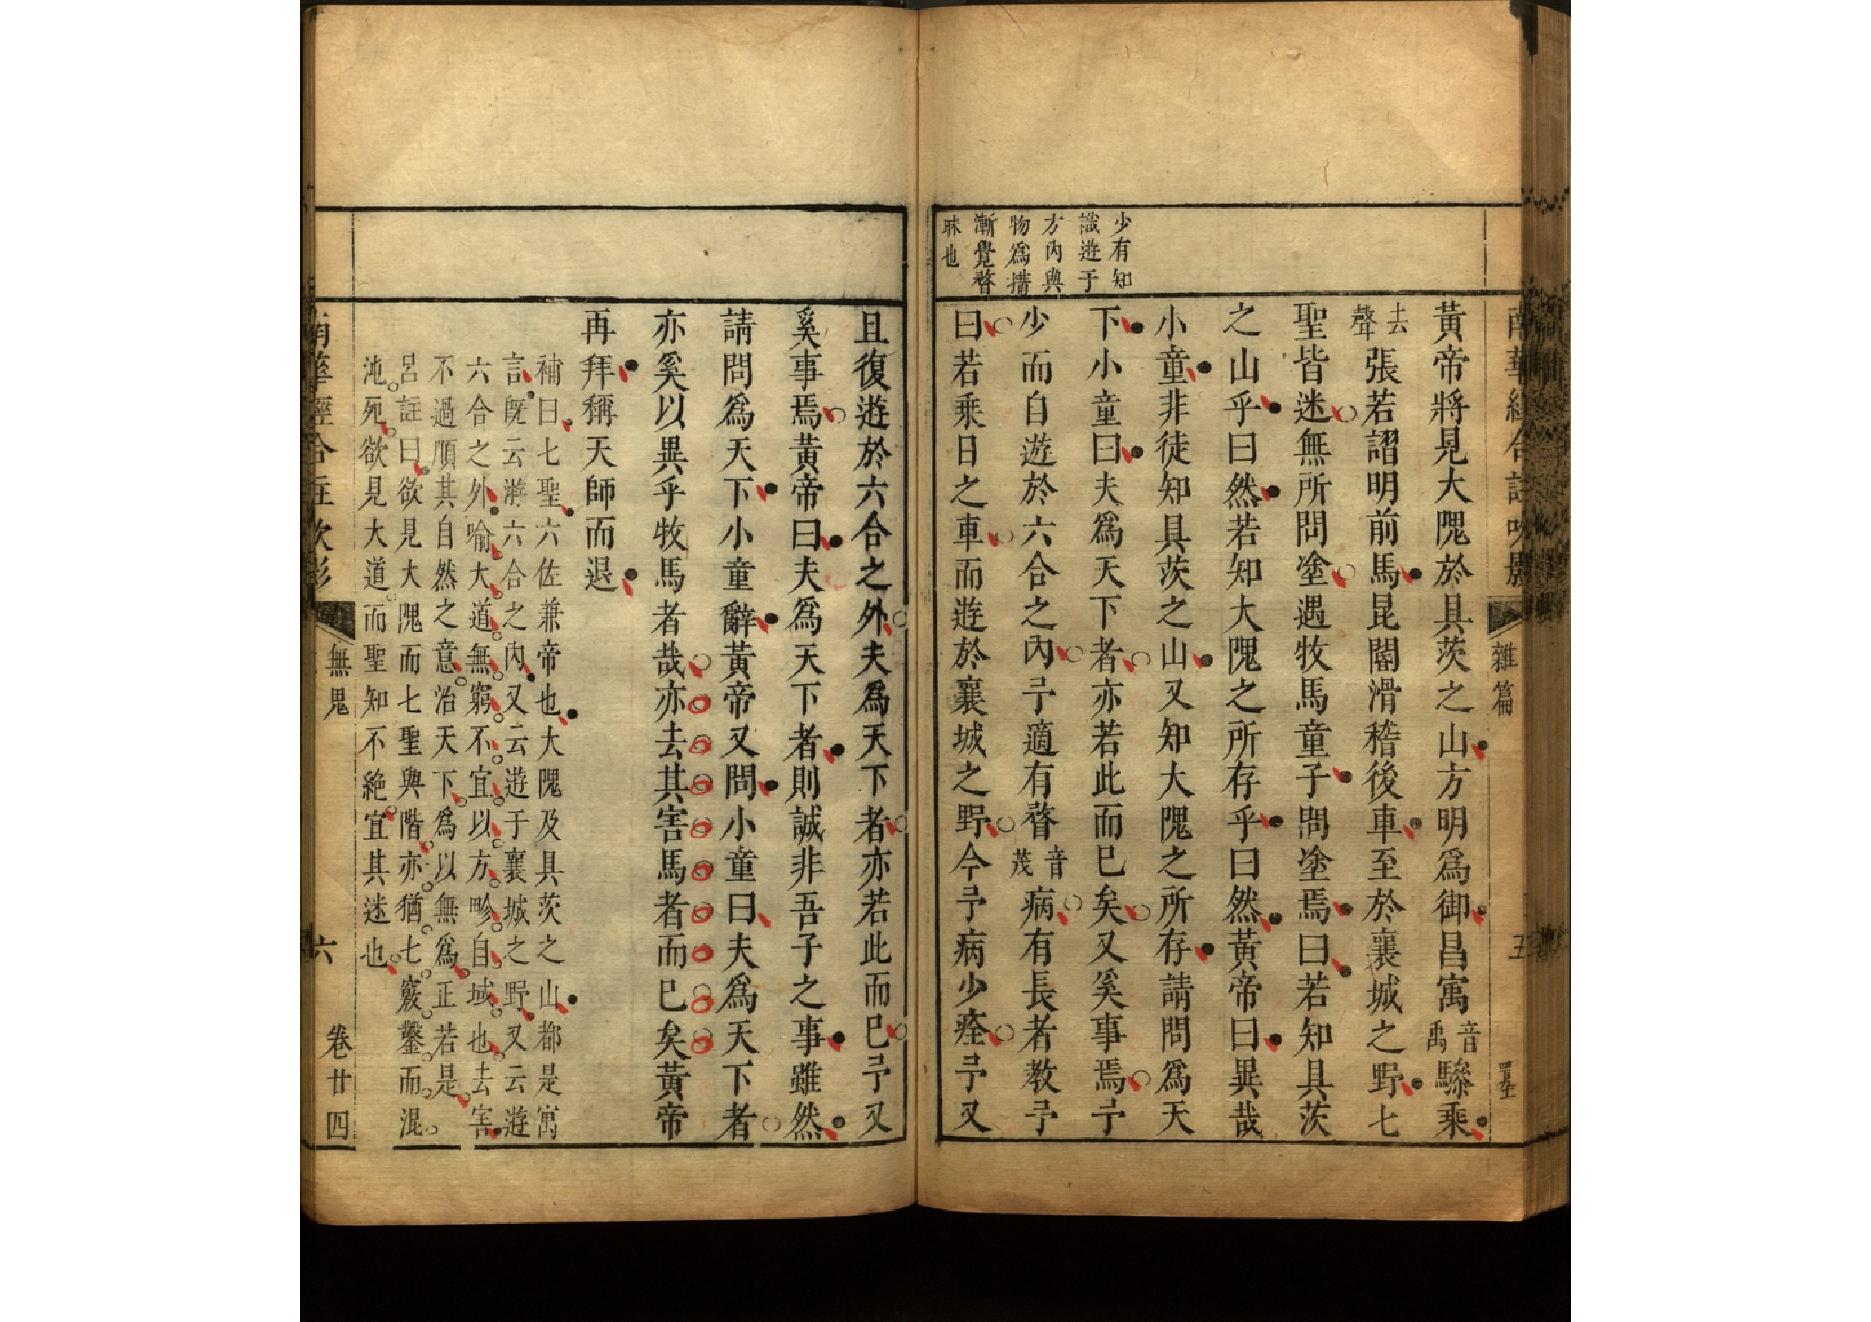 南華經合註吹影
雜篇
五
黃帝將見大隗於具茨之山方明爲御昌寓音禹驂乘
去聲張若謵明前馬昆閽滑稽後車至於襄城之野七
聖皆迷無所問塗遇牧馬童子問塗焉曰若知具茨
之山乎曰然若知大隗之所存乎曰然黃帝曰異哉
小童非徒知具茨之山又知大隗之所存請問爲天
下小童曰夫爲天下者亦若此而已矣又奚事焉予
少而自遊於六合之內予適有瞀音茂病有長者教予
曰若乘日之車而遊於襄城之野今予病少痊予又
少有知
識遊于
方內與
物爲搆
漸覺瞀
昧也
且復遊於六合之外夫爲天下者亦若此而已予又
奚事焉黃帝曰夫爲天下者則誠非吾子之事雖然
請問爲天下小童辭黃帝又問小童曰夫爲天下者
亦奚以異乎牧馬者哉亦去其害馬者而已矣黃帝
再拜稱天師而退
補曰七聖六佐兼帝也大隗及具茨之山都是寓
言旣云遊六合之內又云遊于襄城之野又云遊
六合之外喻大道無窮不宜以方畛自域也去害
不過順其自然之意治天下爲以無爲正若是
呂註曰欲見大隗而七聖與階亦猶七竅鑿而混
沌死欲見大道而聖知不絶宜其迷也
南華經合註吹影
無鬼
六
卷廿四